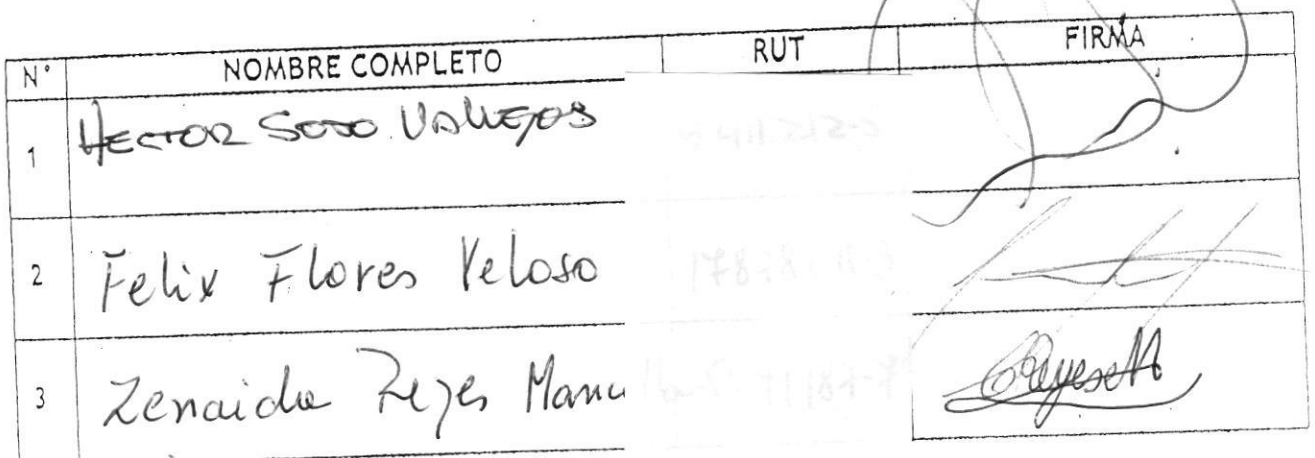 N° NOMBRE COMPLETO RUT FIRMA
1 HECTOR SOTO VALLEJOS
2 Felix Flores Veloso
3 Zenaida Reyes Manu